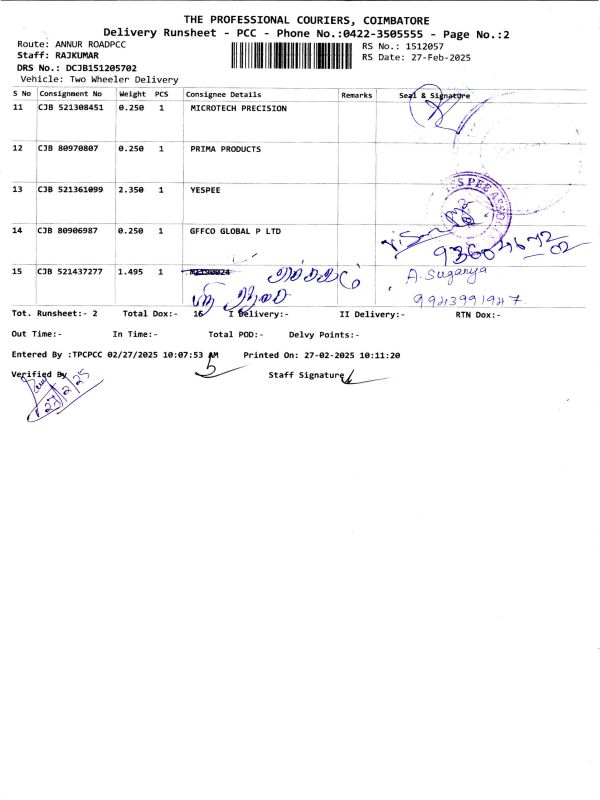 THE PROFESSIONAL COURIERS, COIMBATORE
Delivery Runsheet - PCC - Phone No.:0422-3505555 - Page No.:2
Route: ANNUR ROADPCC
RS No.: 1512057
Staff: RAJKUMAR
RS Date: 27-Feb-2025
DRS No.: DCJB151205702
Vehicle: Two Wheeler Delivery
S No Consignment No Weight PCS Consignee Details Remarks Seal & Signature
11 CJB 521308451 0.250 1 MICROTECH PRECISION
12 CJB 80970807 0.250 1 PRIMA PRODUCTS
13 CJB 521361099 2.350 1 YESPEE
14 CJB 80906987 0.250 1 GFFCO GLOBAL P LTD
15 CJB 521437277 1.495 1
A. Suganya
Tot. Runsheet:- 2 Total Dox:- 16 I Delivery:- II Delivery:- RTN Dox:-
Out Time:- In Time:- Total POD:- Delvy Points:-
Entered By :TPCPCC 02/27/2025 10:07:53 AM Printed On: 27-02-2025 10:11:20
5
Verified By Staff Signature
27/2/25